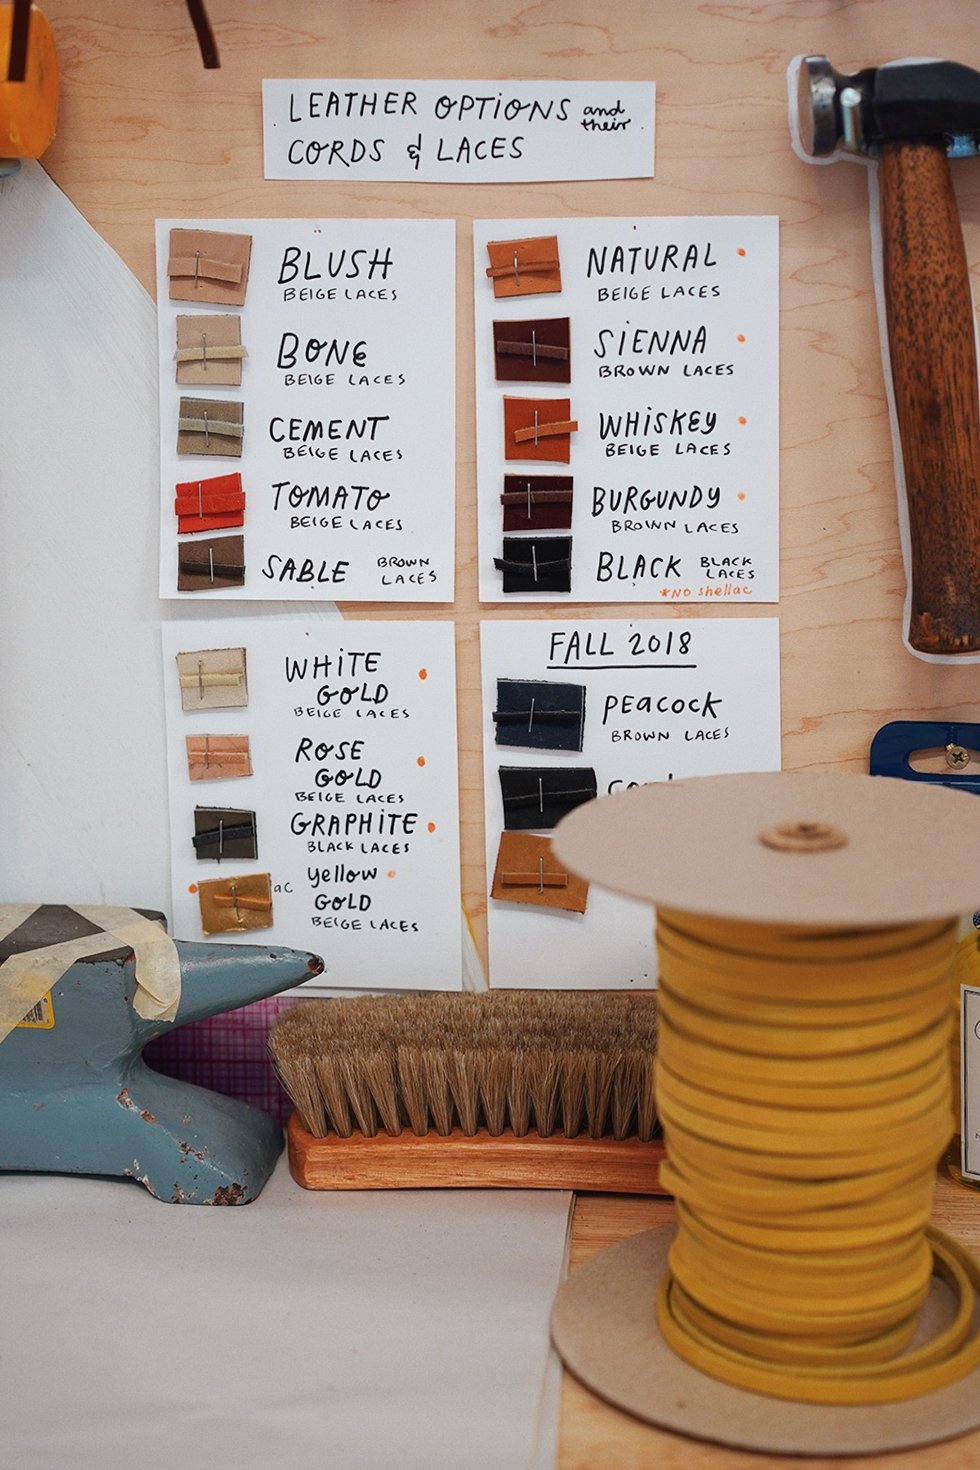 LEATHER OPTIONS and their
CORDS & LACES
BLUSH
BEIGE LACES
BONE
BEIGE LACES
CEMENT
BEIGE LACES
TOMATO
BEIGE LACES
SABLE BROWN LACES
NATURAL
BEIGE LACES
SIENNA
BROWN LACES
WHISKEY
BEIGE LACES
BURGUNDY
BROWN LACES
BLACK BLACK LACES
*NO shellac
WHITE
GOLD
BEIGE LACES
ROSE
GOLD
BEIGE LACES
GRAPHITE
BLACK LACES
yellow
GOLD
BEIGE LACES
FALL 2018
PEACOCK
BROWN LACES